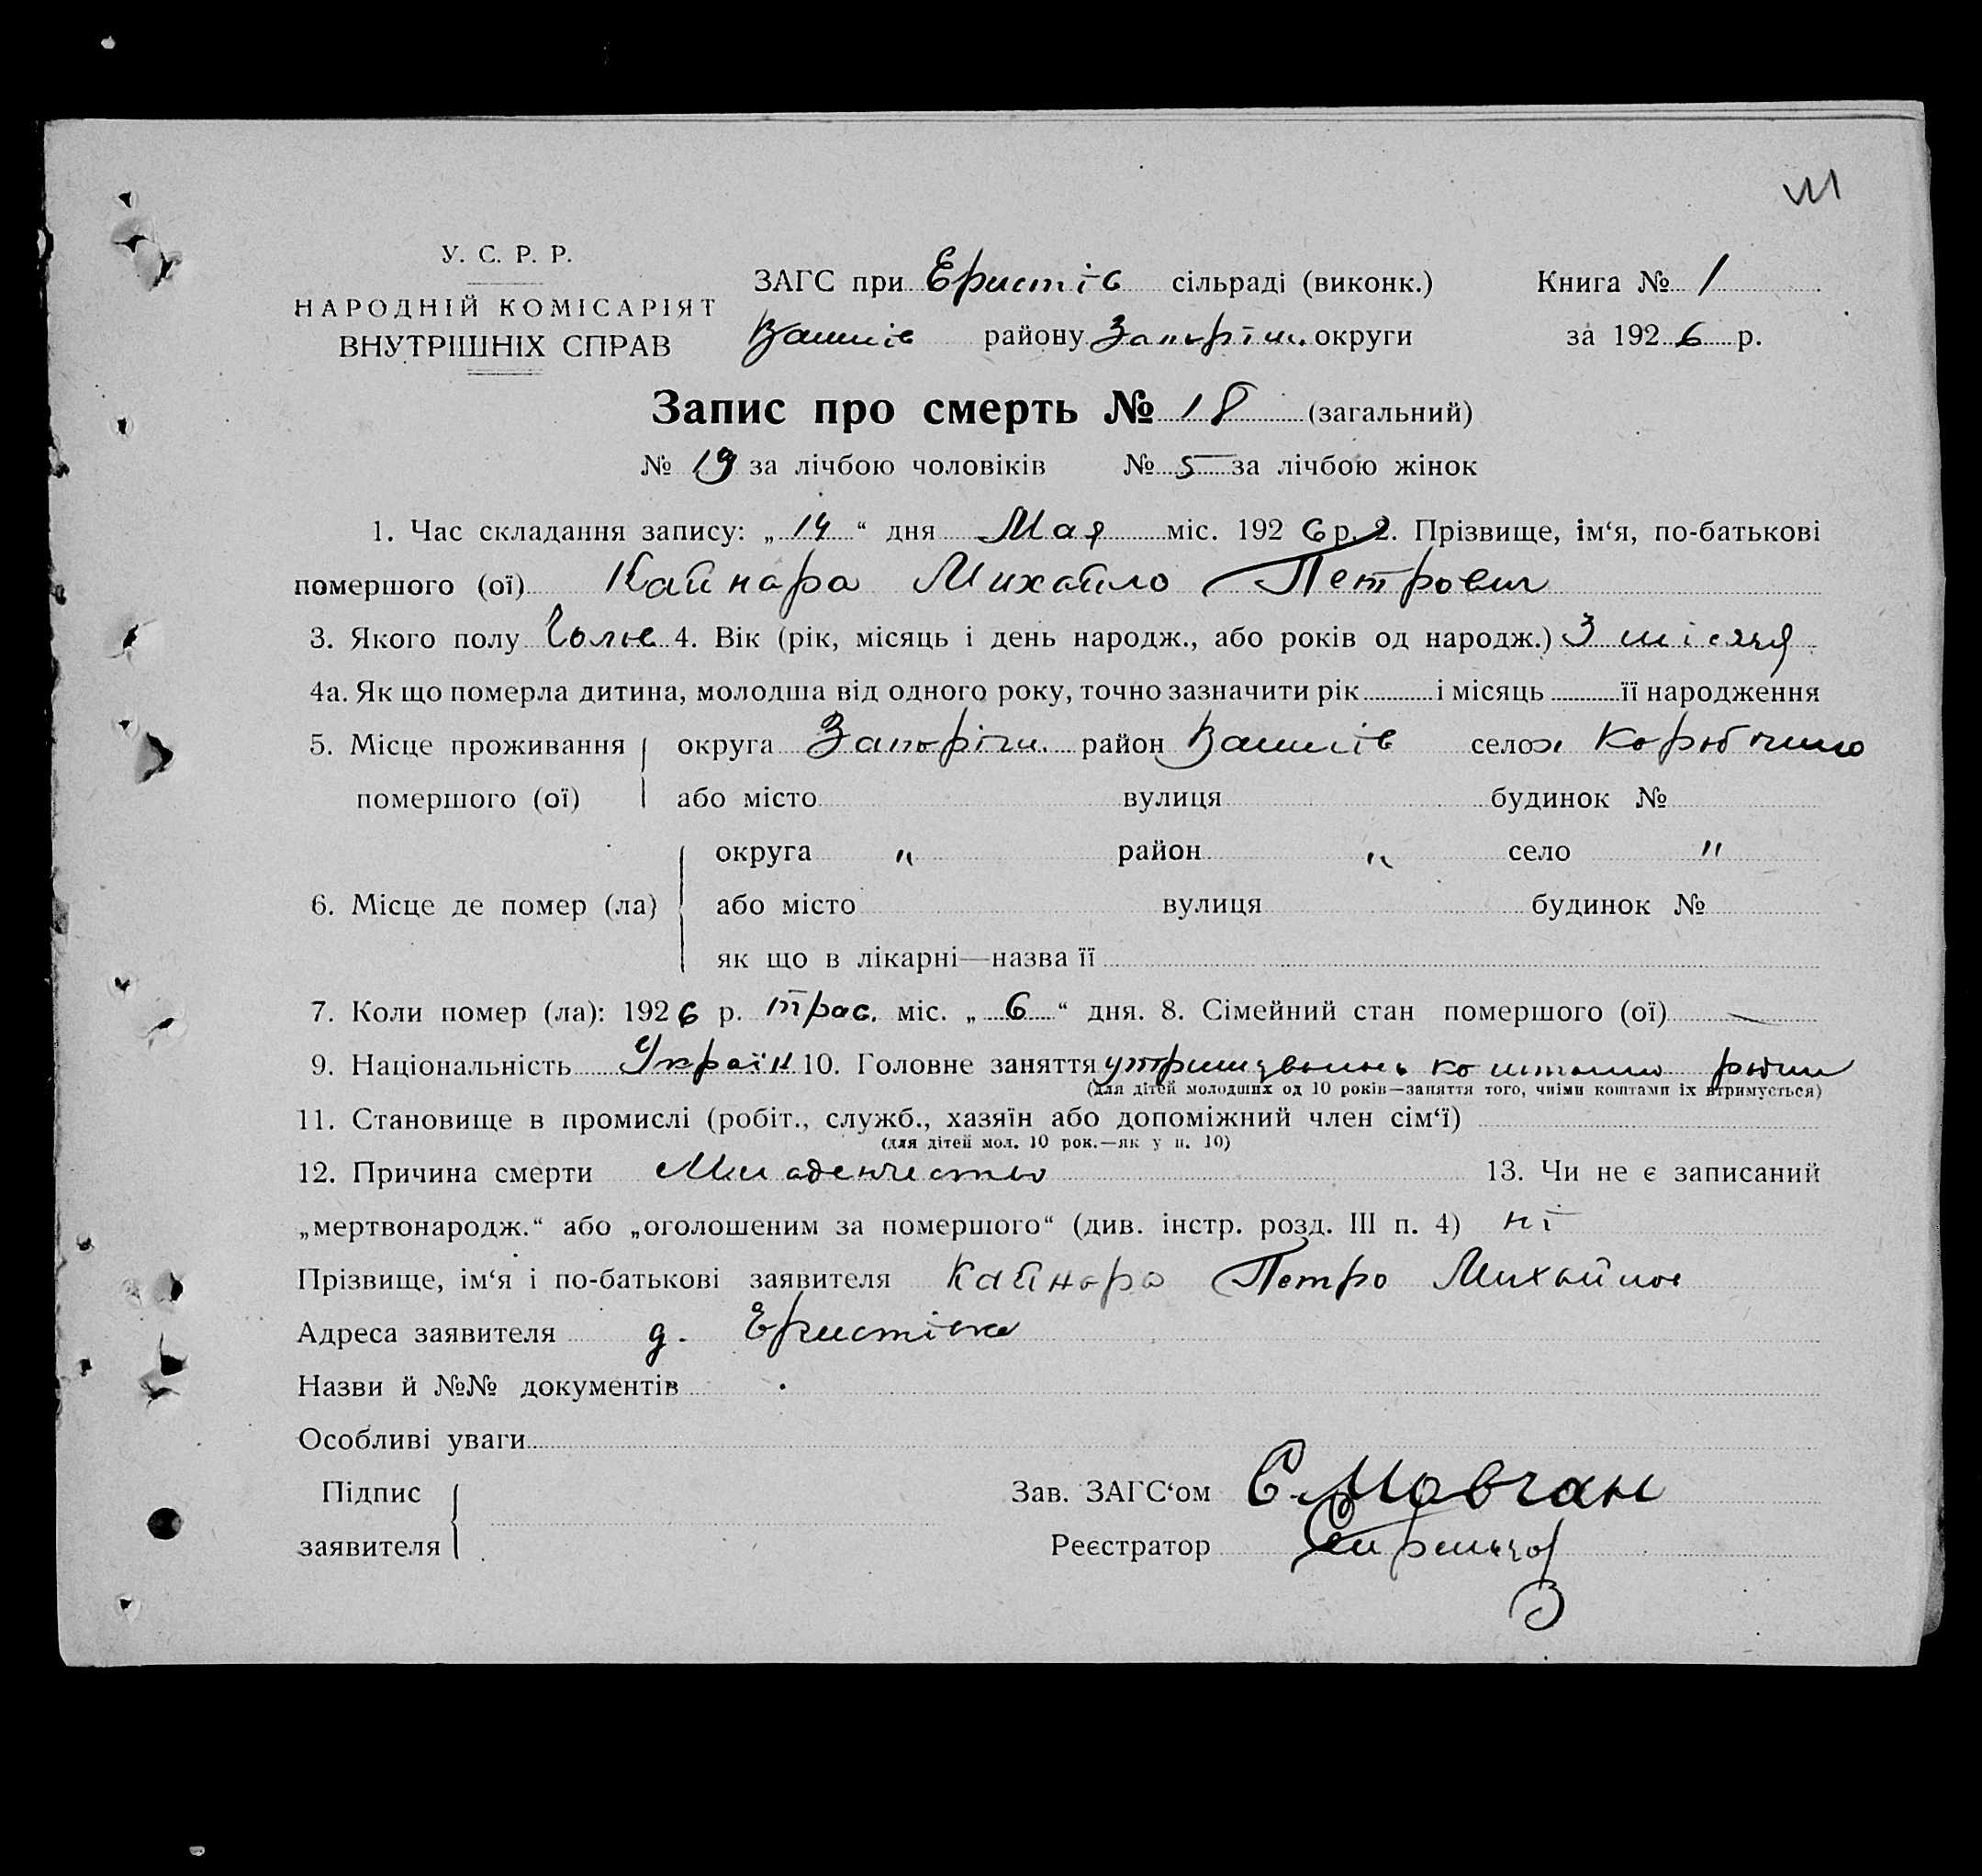 У. С. Р. Р.
НАРОДНІЙ КОМІСАРІЯТ
ВНУТРІШНІХ СПРАВ
ЗАГС при Еристів сільраді (виконк.) Книга № 1
району Запоріж. округи за 1926 р.
Запис про смерть № 18 (загальний)
№ 13 за лічбою чоловіків № 5 за лічбою жінок
1. Час складання запису: „14“ дня Мая міс. 1926 р. 2. Прізвище, ім‘я, по-батькові
помершого (ої) Кайнара Михайло Петрович
3. Якого полу 4. Вік (рік, місяць і день народж., або років од народж.) 3 місяця
4а. Як що померла дитина, молодша від одного року, точно зазначити рік і місяць її народження
5. Місце проживання округа Запоріж. район село
помершого (ої) або місто вулиця будинок №
округа " район " село "
6. Місце де помер (ла) або місто вулиця будинок №
як що в лікарні—назва її
7. Коли помер (ла): 1926 р. трав. міс. „6“ дня. 8. Сімейний стан помершого (ої) —
9. Національність Україн 10. Головне заняття
(для дітей молодших од 10 років—заняття того, чиїми коштами їх втримується)
11. Становище в промислі (робіт., служб., хазяїн або допоміжний член сім‘ї)
(для дітей мол. 10 рок.—як у п. 10)
12. Причина смерти Младенчество 13. Чи не є записаний
„мертвонародж.“ або „оголошеним за помершого“ (див. інстр. розд. III п. 4) ні
Прізвище, ім‘я і по-батькові заявителя Кайнара Петро Михайлов
Адреса заявителя д. Еристівка
Назви й №№ документів
Особливі уваги
Підпис
заявителя
Зав. ЗАГС‘ом С. Мовчан
Реєстратор